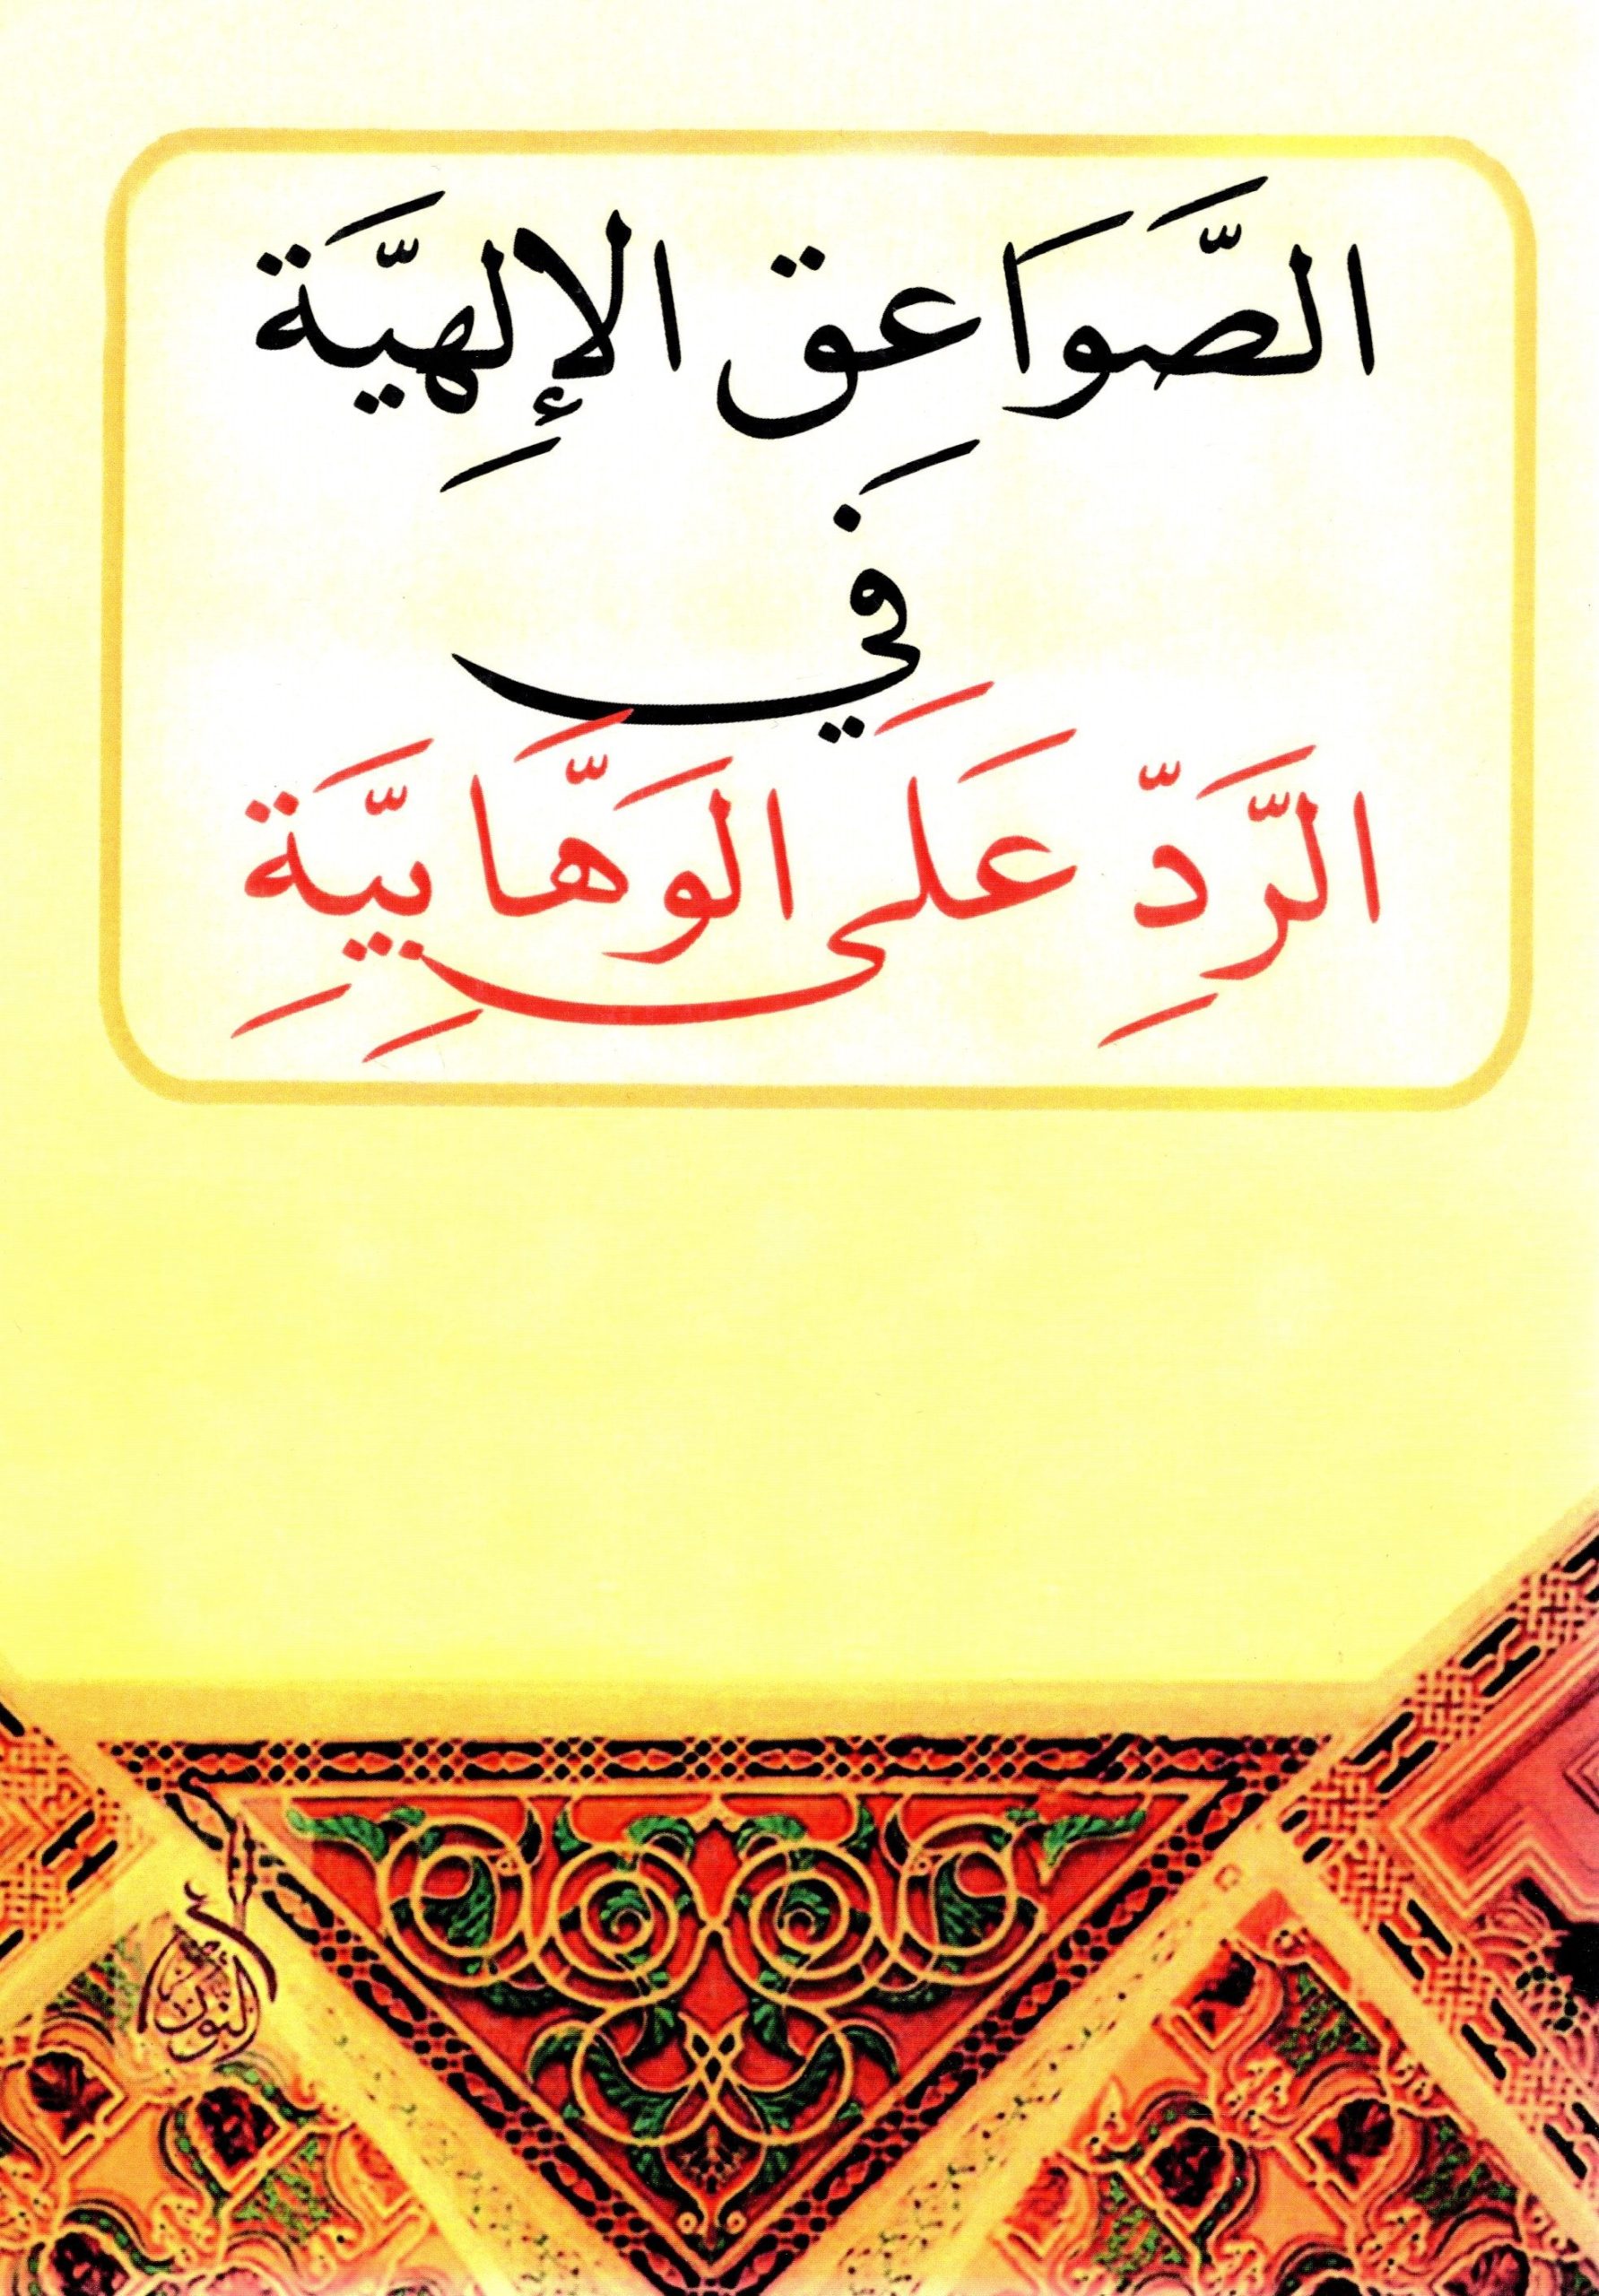 الصَّوَاعِق الإِلهِيَّة
فِي
الرَّدِّ عَلَى الوَهَّابِيَّةِ